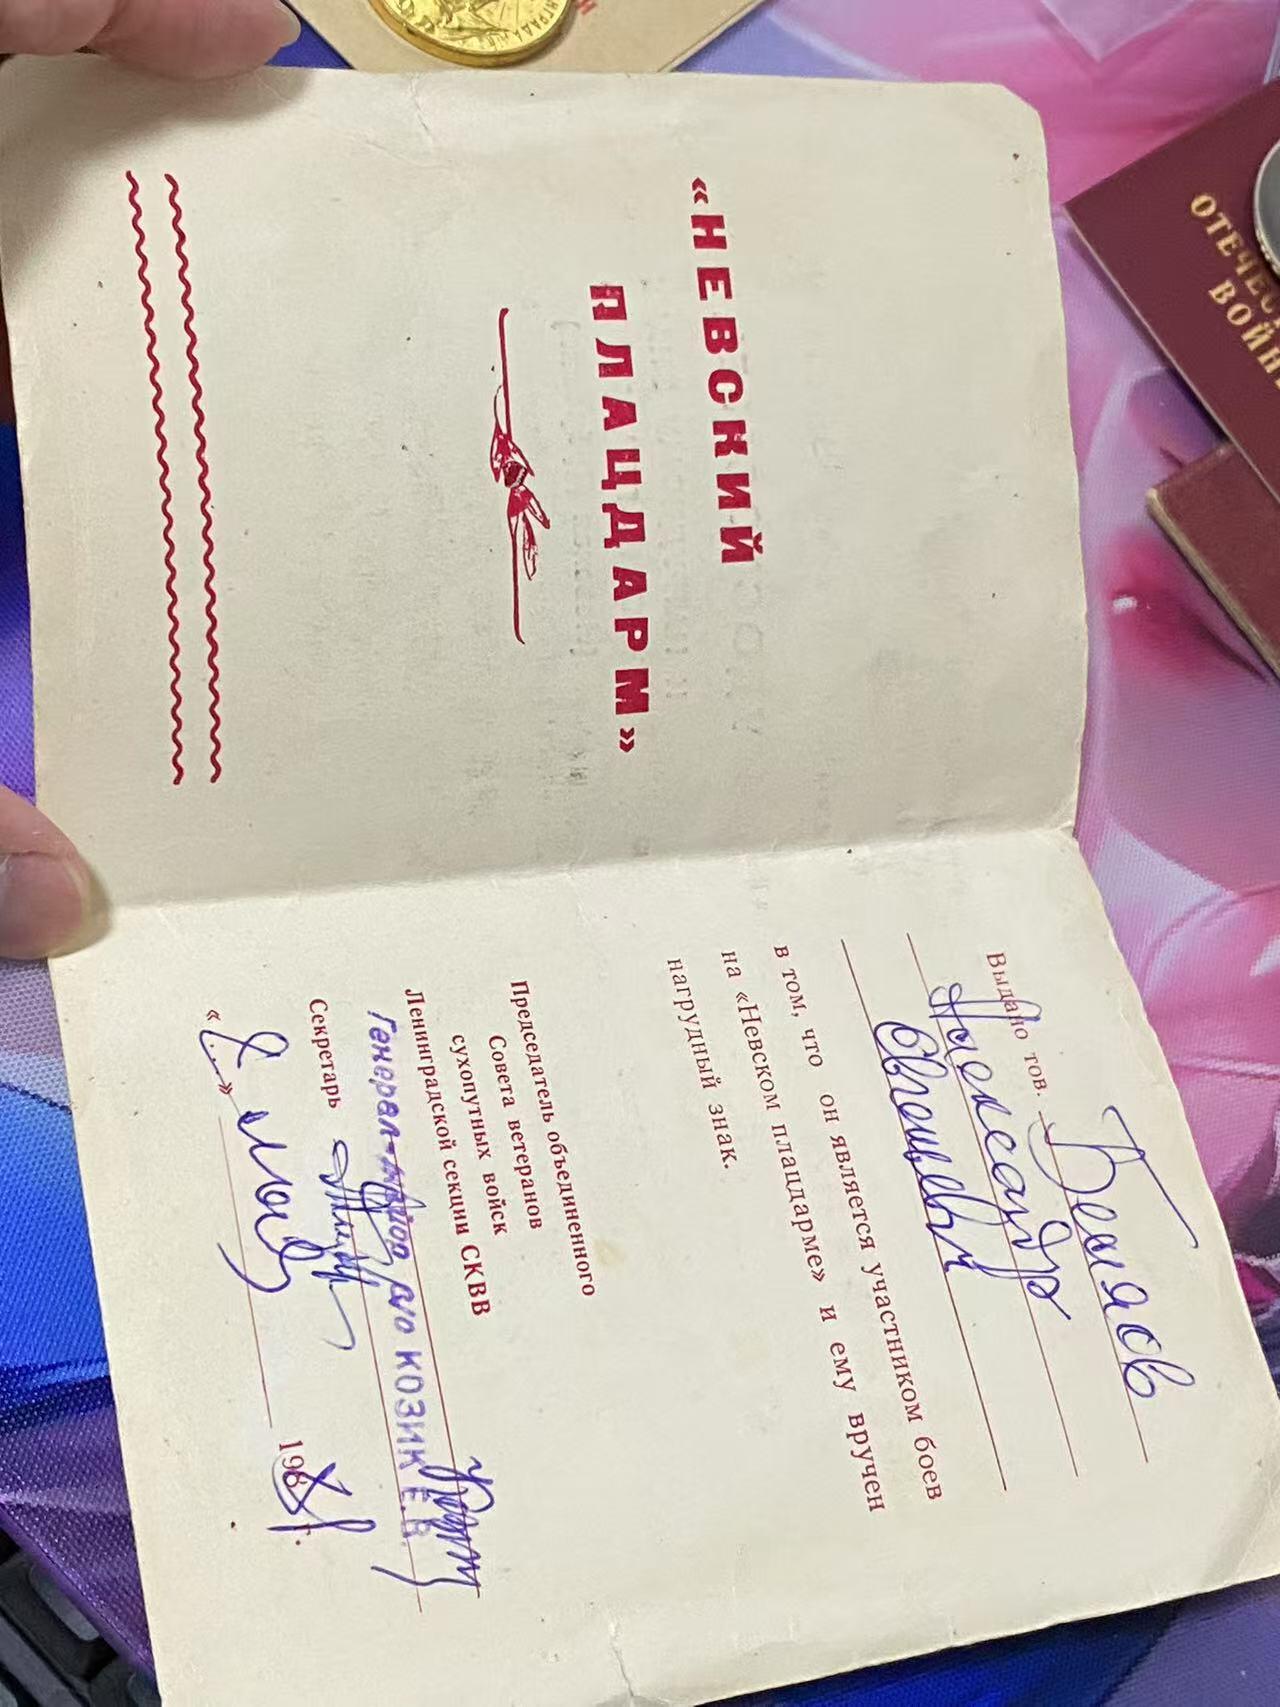 «НЕВСКИЙ
ПЛАЦДАРМ»
Выдано тов. Беляов
Александр
Евгеньевич
в том, что он является участником боев
на «Невском плацдарме» и ему вручен
нагрудный знак.
Председатель объединенного
Совета ветеранов
сухопутных войск
Ленинградской секции СКВВ
Генерал-майор а/ю КОЗИК Е.В.
Секретарь
198 г.
ОТЕЧЕС
ВОЙН